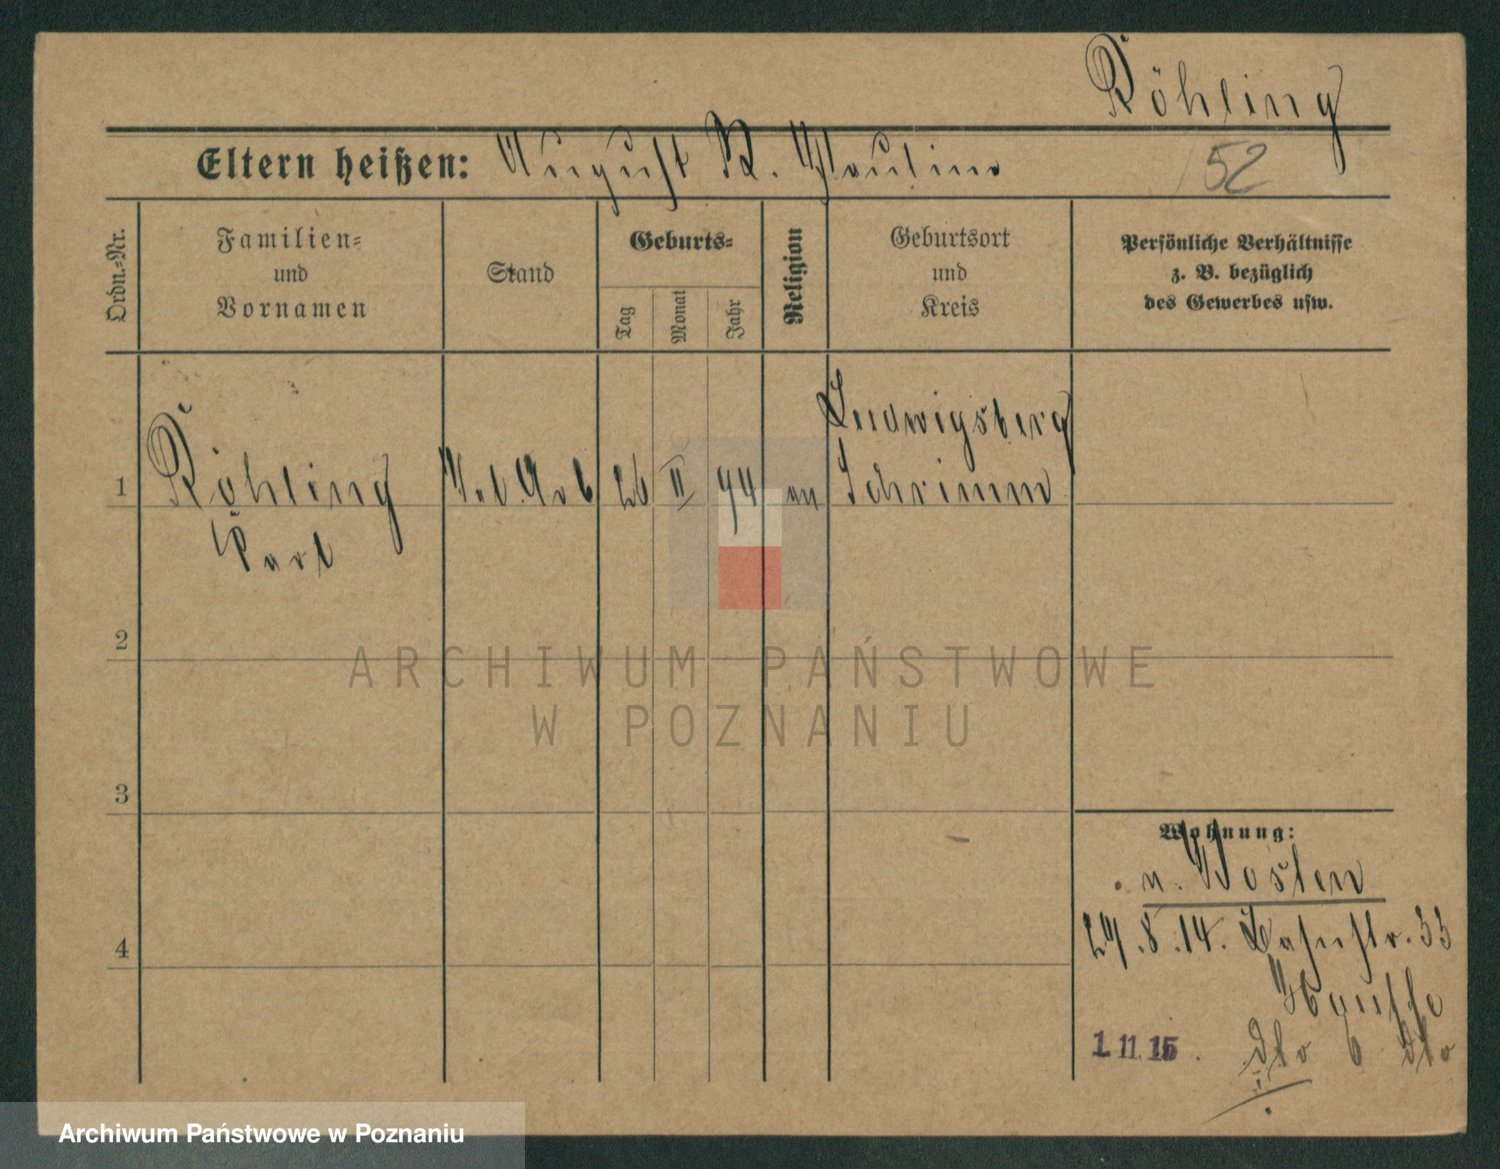 Röhling
Eltern heißen: August R. Paulina
52
Ordn.-Nr.
Familien-
und
Vornamen
Stand
Geburts-
Tag
Monat
Jahr
Religion
Geburtsort
und
Kreis
Persönliche Verhältnisse
z. B. bezüglich
des Gewerbes usw.
Ludwigsberg
1 Röhling 26 II 94 ev Schrimm
Karl
2
ARCHIWUM PAŃSTWOWE
W POZNANIU
3
Wohnung:
n. Posten
4
29.8.14. 33
1. 11. 15. dto 6 dto
Archiwum Państwowe w Poznaniu